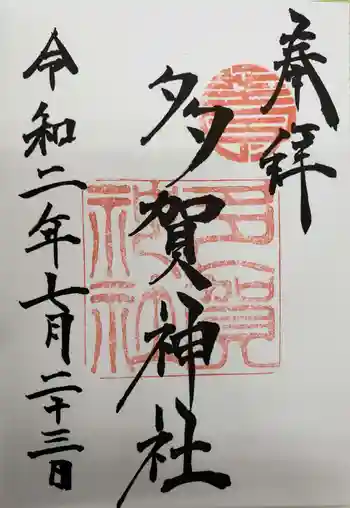 奉拝
多賀神社
令和二年七月二十三日
多賀
神社